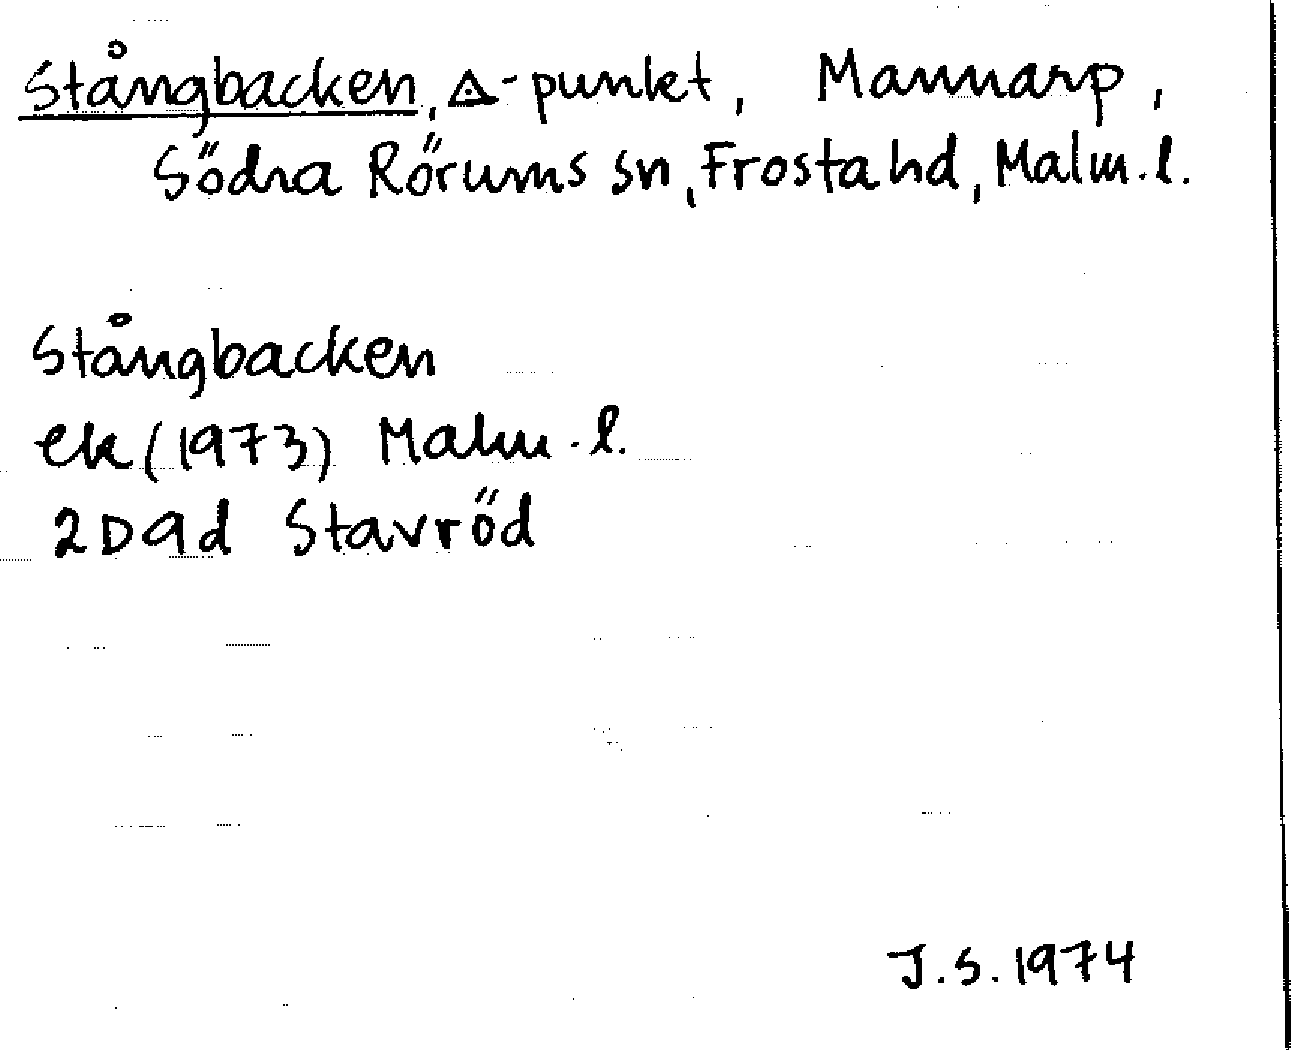 Stångbacken, △-punkt, Mannarp,
Södra Rörums sn, Frosta hd, Malm.l.
Stångbacken
ek (1973) Malm.l.
2D9d Stavröd
J.S. 1974